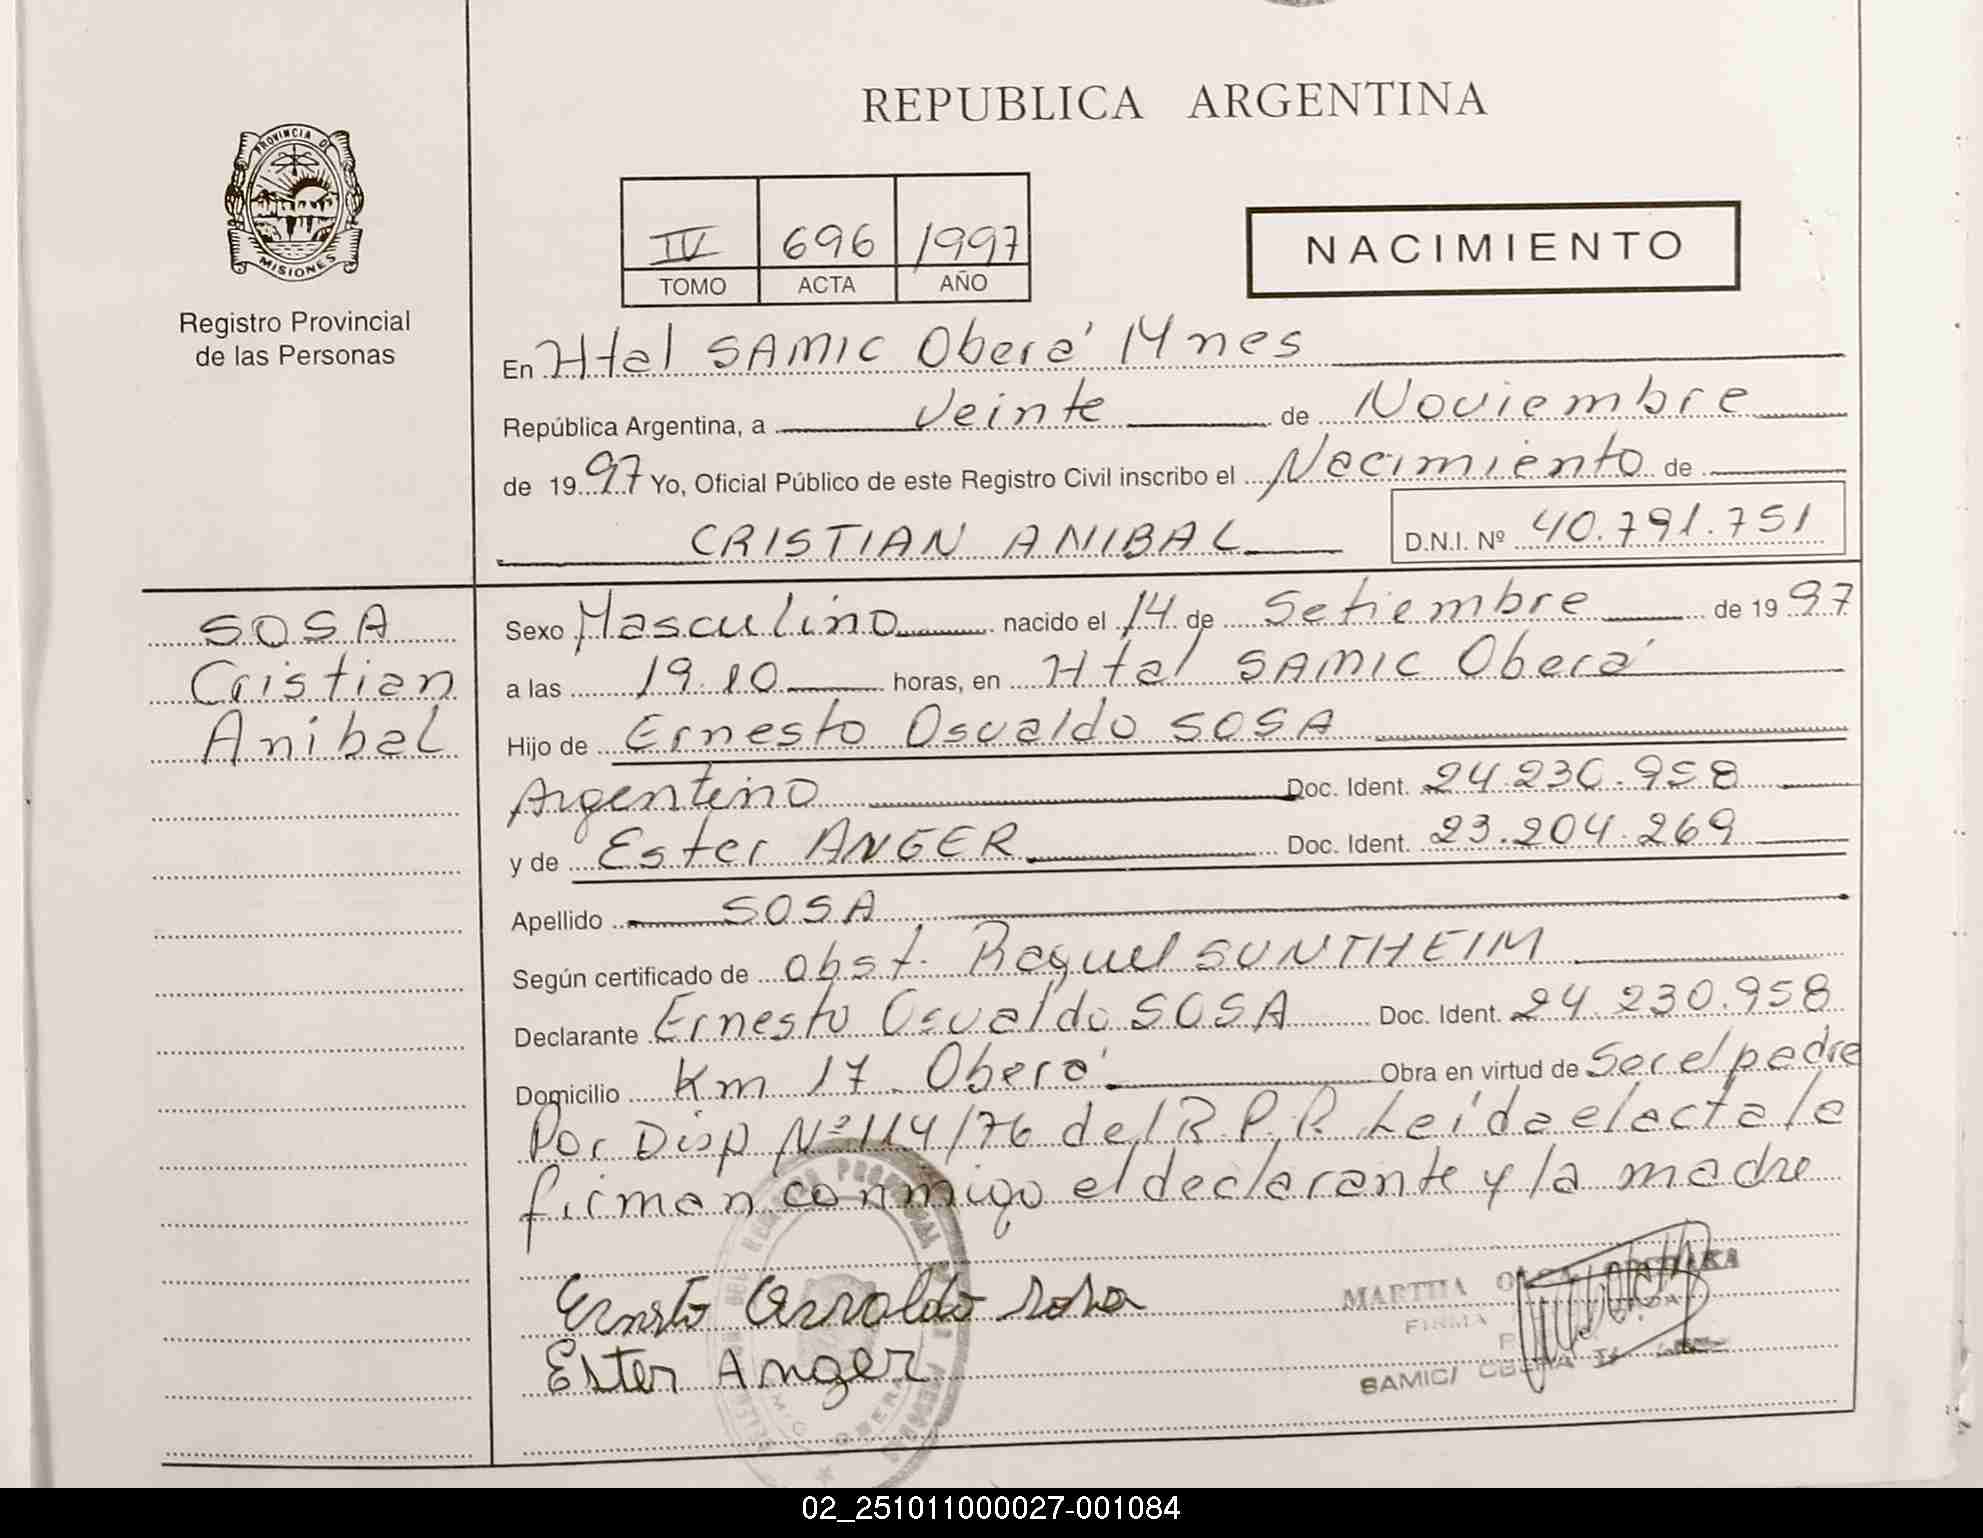 REPUBLICA ARGENTINA
PROVINCIA DE
MISIONES
Registro Provincial
de las Personas
IV 696 1997
TOMO ACTA AÑO
NACIMIENTO
En Htal SAMIC Oberá Mnes
República Argentina, a Veinte de Noviembre
de 1997 Yo, Oficial Público de este Registro Civil inscribo el Nacimiento de
CRISTIAN ANIBAL D.N.I. Nº 40.791.751
SOSA
Cristian
Anibal
Sexo Masculino nacido el 14 de Setiembre de 1997
a las 19.10 horas, en Htal SAMIC Oberá
Hijo de Ernesto Osvaldo SOSA
Argentino Doc. Ident. 24.230.958
y de Ester ANGER Doc. Ident. 23.204.269
Apellido SOSA
Según certificado de obst. Raquel SUNTHEIM
Declarante Ernesto Osvaldo SOSA Doc. Ident. 24.230.958
Domicilio Km 17 Oberá Obra en virtud de Ser el padre
Por Disp Nº 114/76 del R.P.P. Leída el acta la
firman conmigo el declarante y la madre
Ernesto Osvaldo Sosa
Ester Anger
MARTHA
FIRMA
SAMIC/ OBERA
02_251011000027-001084